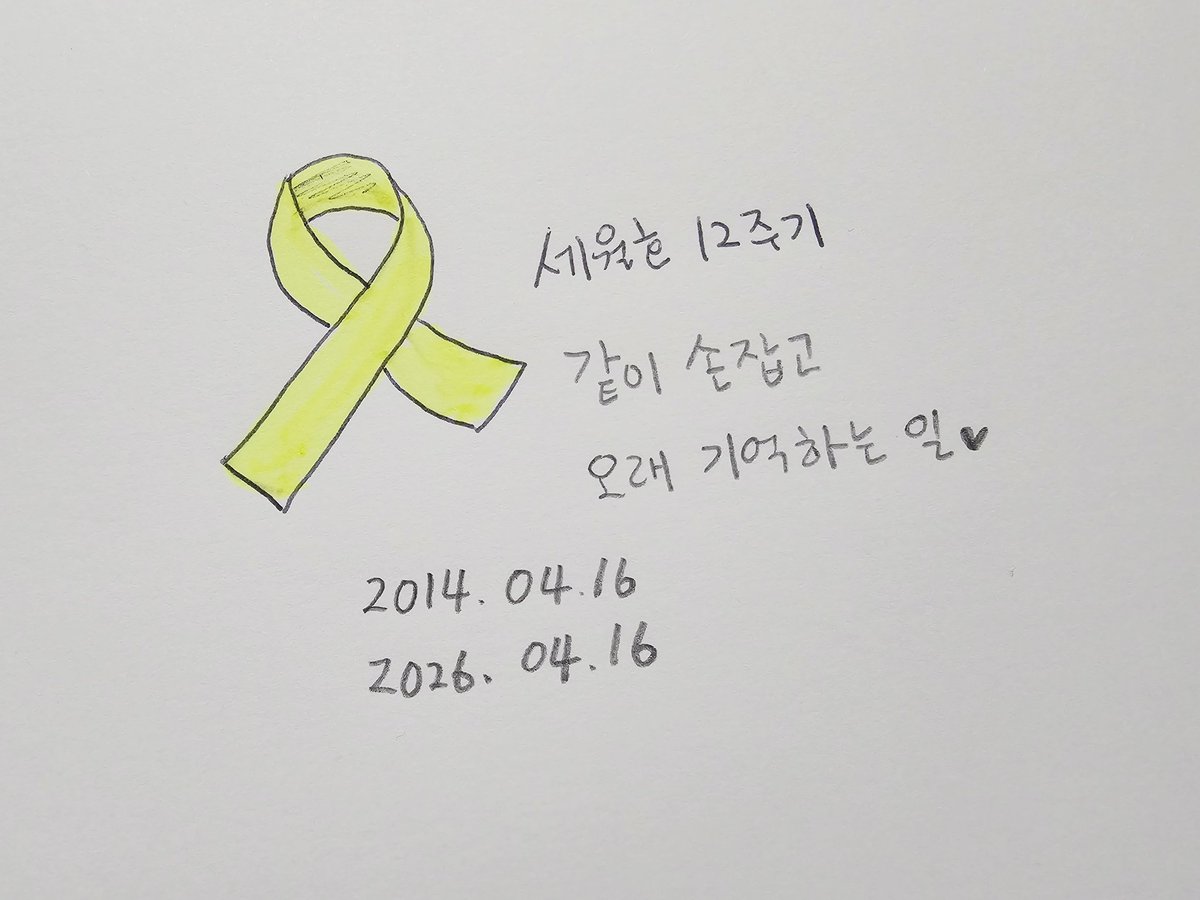 세월호 12주기
같이 손잡고
오래 기억하는 일♥
2014. 04.16
2026. 04.16